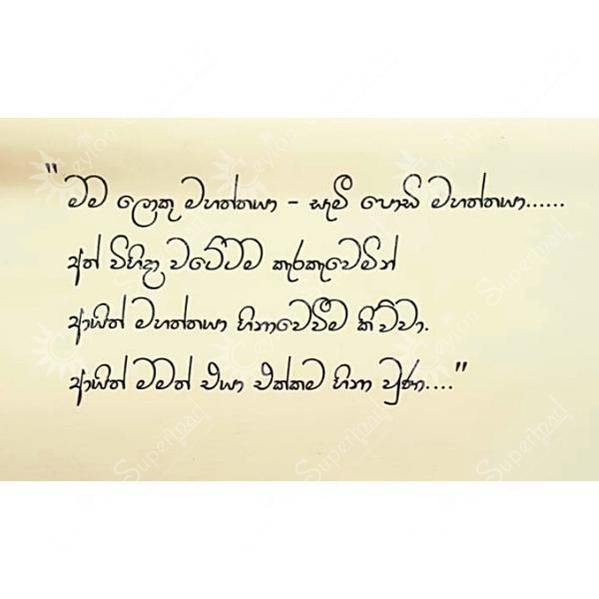 "මම ලොකු මහත්තයා - සැමී පොඩි මහත්තයා......
අත් විහිදා වටේටම කැරකැවෙමින්
ආයිත් මහත්තයා හිනාවෙවීම කිව්වා.
ආයිත් මමත් එයා එක්කම හිනා වුණා...."
Ceylon
Superipad